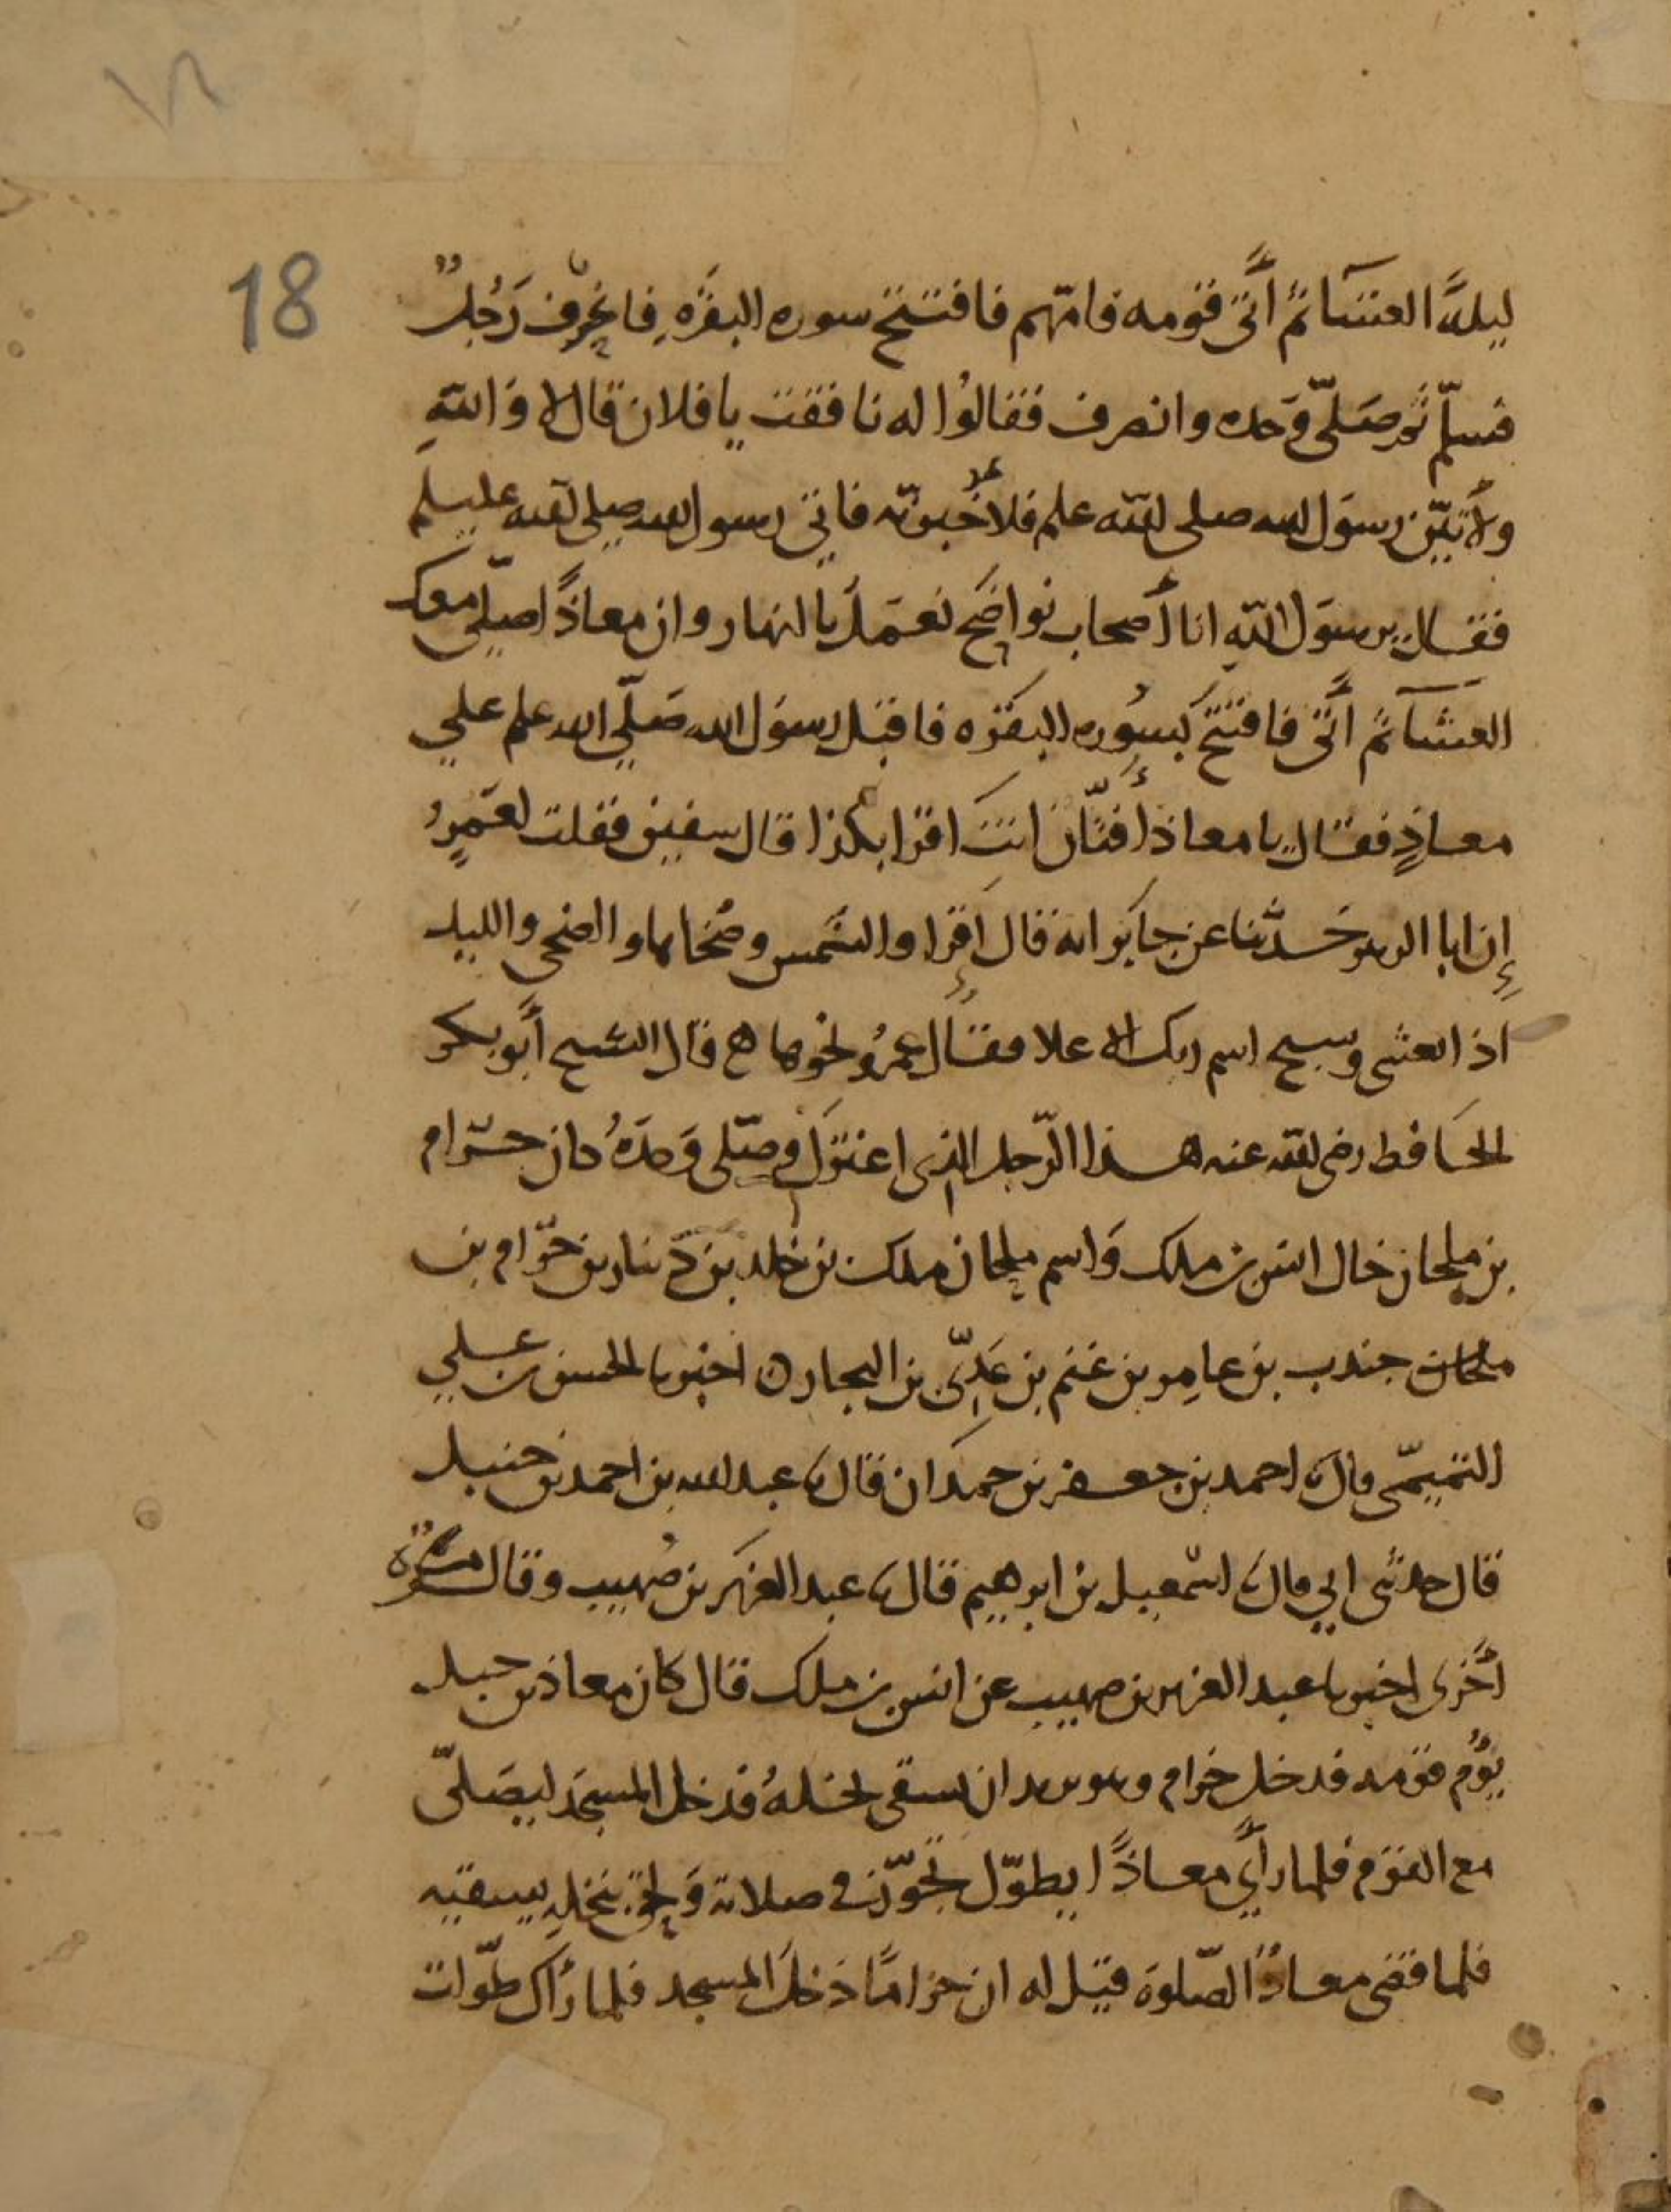 18
ليلةً العشآ ثمّ أتَى قومه فامّهم فافتتح سوره البقَرَهِ فانحرف رَجُلٌ
فسلّم ثم صَلّى وَحده وانصرف فقالُوا له نافقت يا فلان قال لا وَاللّهِ
ولأتيّن رسوَل الله صلى الله علم فلأُخبرنّه فاتى رسول الله صلى الله عليسلم
فقال يرسوَل اللّهِ انا أصحاب نواضَح نعمَل بالنهار وان معاذًا صلّى معك
العشآ ثمّ أتَى فافتَتح بسُوره البقَره فاقبَل رسوَل الله صَلّى الله علم علي
معاذٍ فقال يا معاذ أفتّان انتَ اقرا بكذا قال سفين فقلت لعَمرٍو
إن ابا الزبير حَدّثنا عن جابر انه قال اقرَا والشَمس وضحاها والضحى والليل
اذا يغشى وسبح اسم ربك الاعلا فقال عمرُو نحوها ه قال الشيخ أبَو بكر
الحَافظ رضى الله عنه هذا الرّجل الذى اعتزَل وصَلى وَحدَهُ كان حَرام
بن ملحان خال انس بن ملك وَاسم ملحان ملك بن خلد بن دَينار بن حَرام بن
ملحان جندب بن عامِر بن غنم بن عَدِىّ بن النجار ه اخبرنا الحسن بن علي
التميمّى قال نا احمد بن جعفر بن حمدَان قال نا عبد الله بن احمد بن حنبل
قال حدثنى ابي قال نا اسْمعيل بن ابرهيم قال نا عبد العزيَز بن صُهيب وقال مَرّةً
أخرَى اخبرنا عبد العزيز بن صهيب عن انس بن ملك قال كان معاذ بن جبل
يؤُم قومَه فدخل حرام وهو يريد ان يسقى نخلهُ فدخل المسجَد ليصَلىّ
مع القوَم فلما رأَي معاذًا يطوّل تجَوّز فى صلاته وَلحق بنخلِه يسقيه
فلما قضى معاذُ الصّلوة قيَل له ان حرامًا دَخلَ المسجد فلما رَاك طوّلت